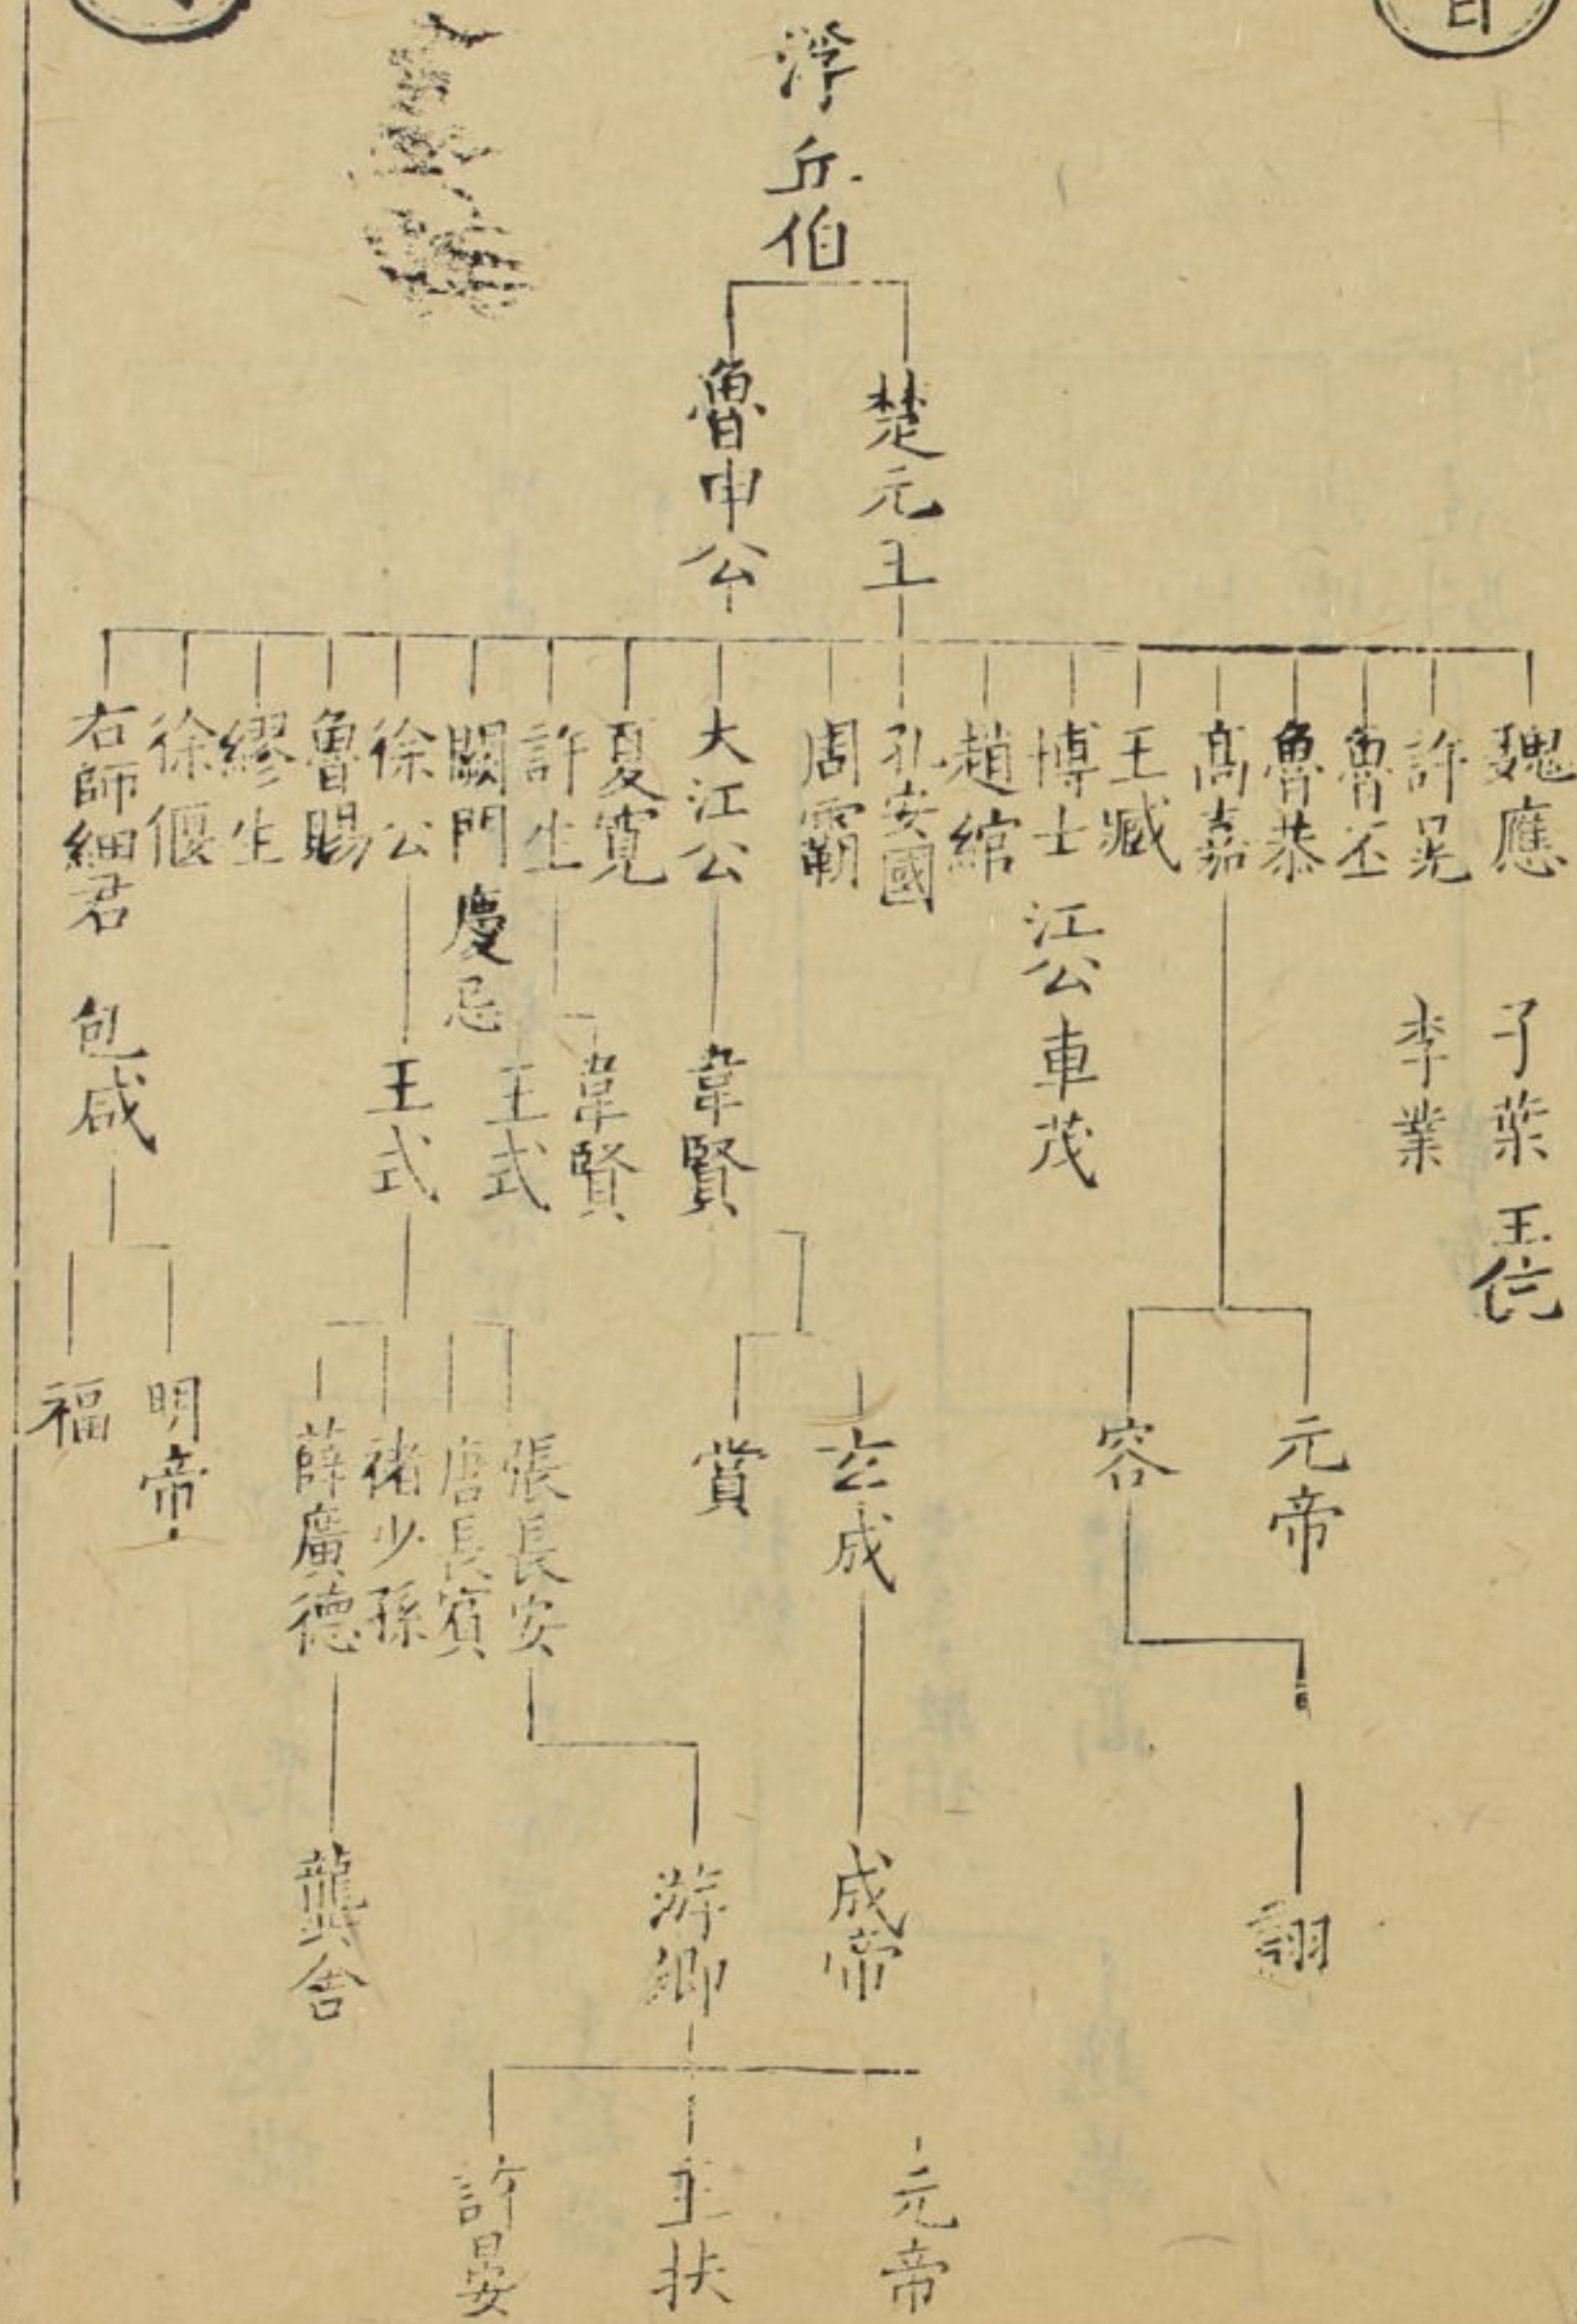 浮丘伯
楚元王
魯申公
魏應
許晃
魯丕
魯恭
髙嘉
王臧
博士江公
趙綰
孔安國
周霸
大江公
夏寛
許生
闕門慶忌
徐公
魯賜
繆生
徐偃
右師細君
子葉
王伉
李業
車茂
韋賢
韋賢
王式
王式
包咸
元帝
容
玄成
賞
張長安
唐長賓
禇少孫
薛廣德
明帝
福
詡
成帝
游卿
龔舎
元帝
王扶
許晏